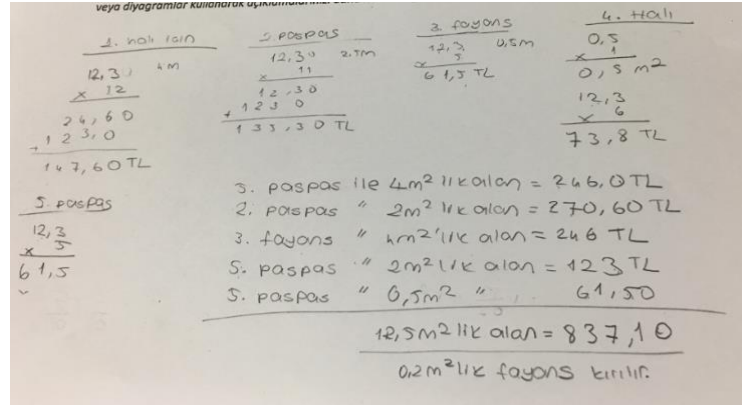 veya diyagramlar kullanarak açıklamalarınızı
1. halı için
12,30 4m
x 12
24,60
+ 123,0
147,60 TL
2. paspas
12,30 2.5m
x 11
12.30
+ 123 0
133,30 TL
3. fayans
12,3 0,5m
x 5
61,5 TL
4. Halı
0,5
x 1
0,5 m2
12,3
x 6
73,8 TL
5. paspas
12,3
x 5
61,5
5. paspas ile 4m2 lik alan = 246,0 TL
2. paspas " 2m2 lik alan = 270,60 TL
3. fayans " 4m2'lik alan = 246 TL
5. paspas " 2m2 lik alan = 123 TL
5. paspas " 0,5m2 " 61,50
12,5m2 lik alan = 837,10
0,2 m2 lik fayans kırılır.